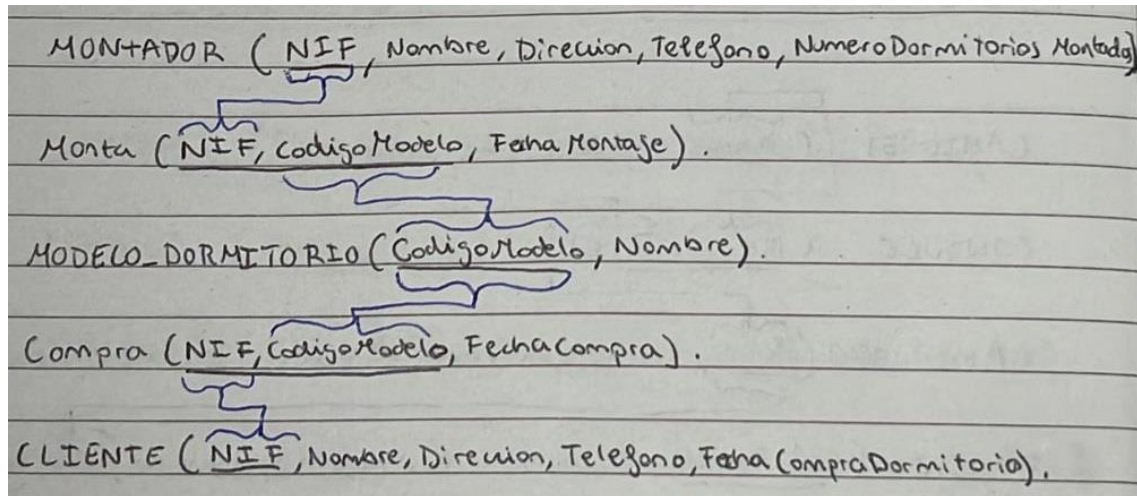 MONTADOR (NIF, Nombre, Direccion, Telefono, NumeroDormitorios Montados)
Monta (NIF, CodigoModelo, Fecha Montaje).
MODELO_DORMITORIO (CodigoModelo, Nombre).
Compra (NIF, CodigoModelo, FechaCompra).
CLIENTE (NIF, Nombre, Direccion, Telefono, FechaCompraDormitorio).